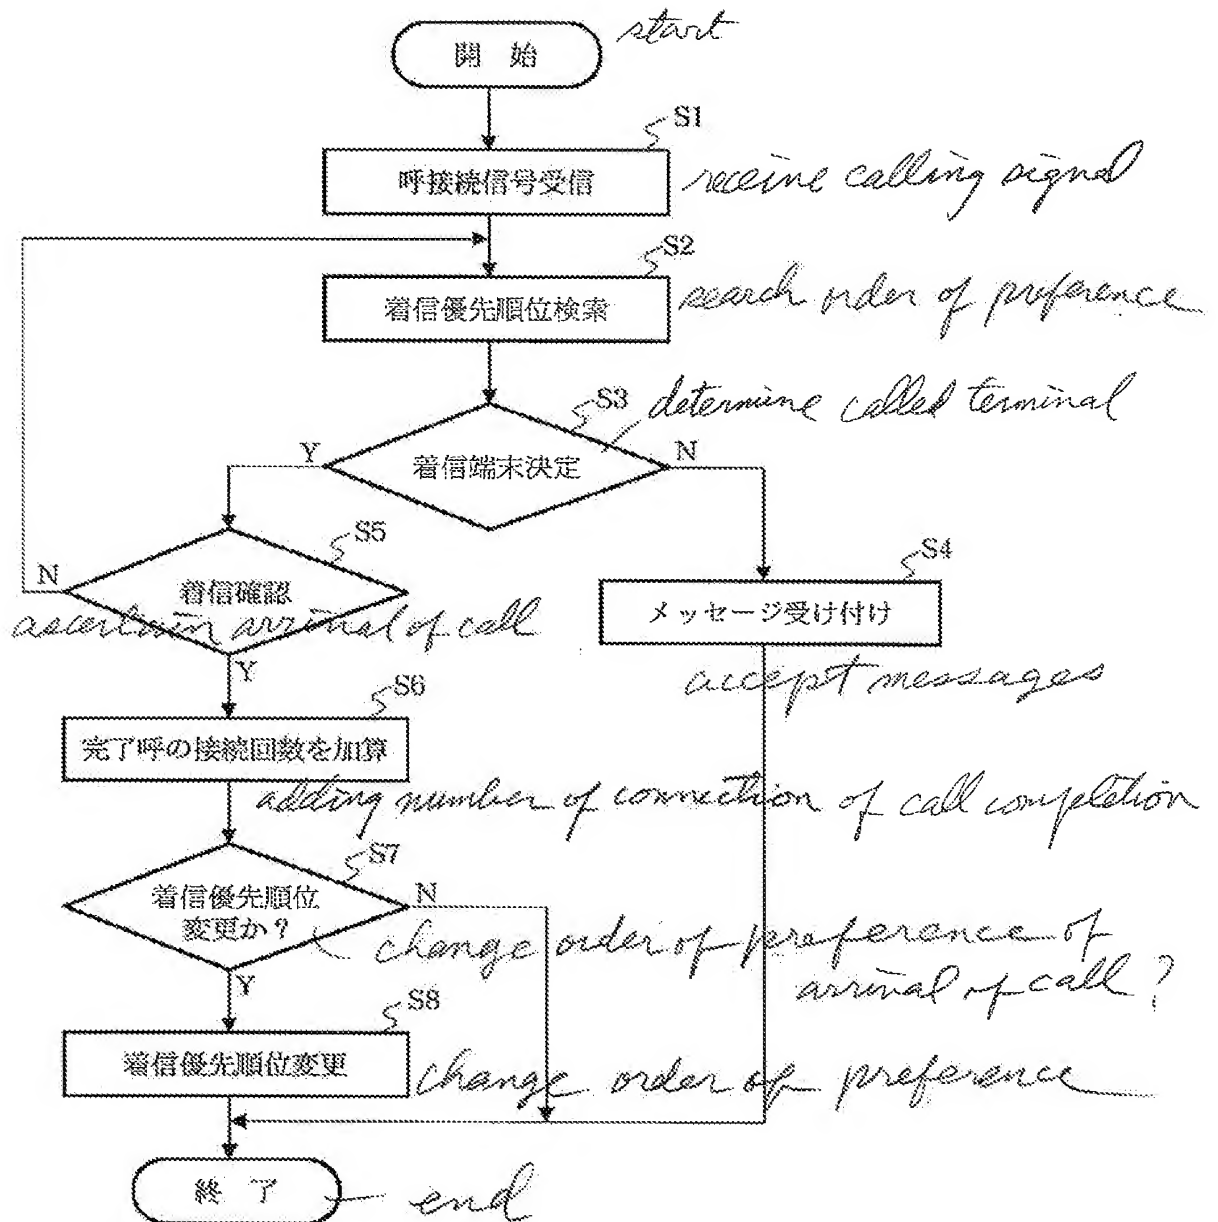 開 始
start
S1
呼接続信号受信
receive calling signal
S2
着信優先順位検索
search order of preference
S3
determine called terminal
Y
着信端末決定
N
S5
S4
N
着信確認
メッセージ受け付け
ascertain arrival of call
Y
accept messages
S6
完了呼の接続回数を加算
adding number of connection of call completion
S7
着信優先順位
変更か?
N
change order of preference of
arrival of call ?
Y
S8
着信優先順位変更
change order of preference
終 了
end